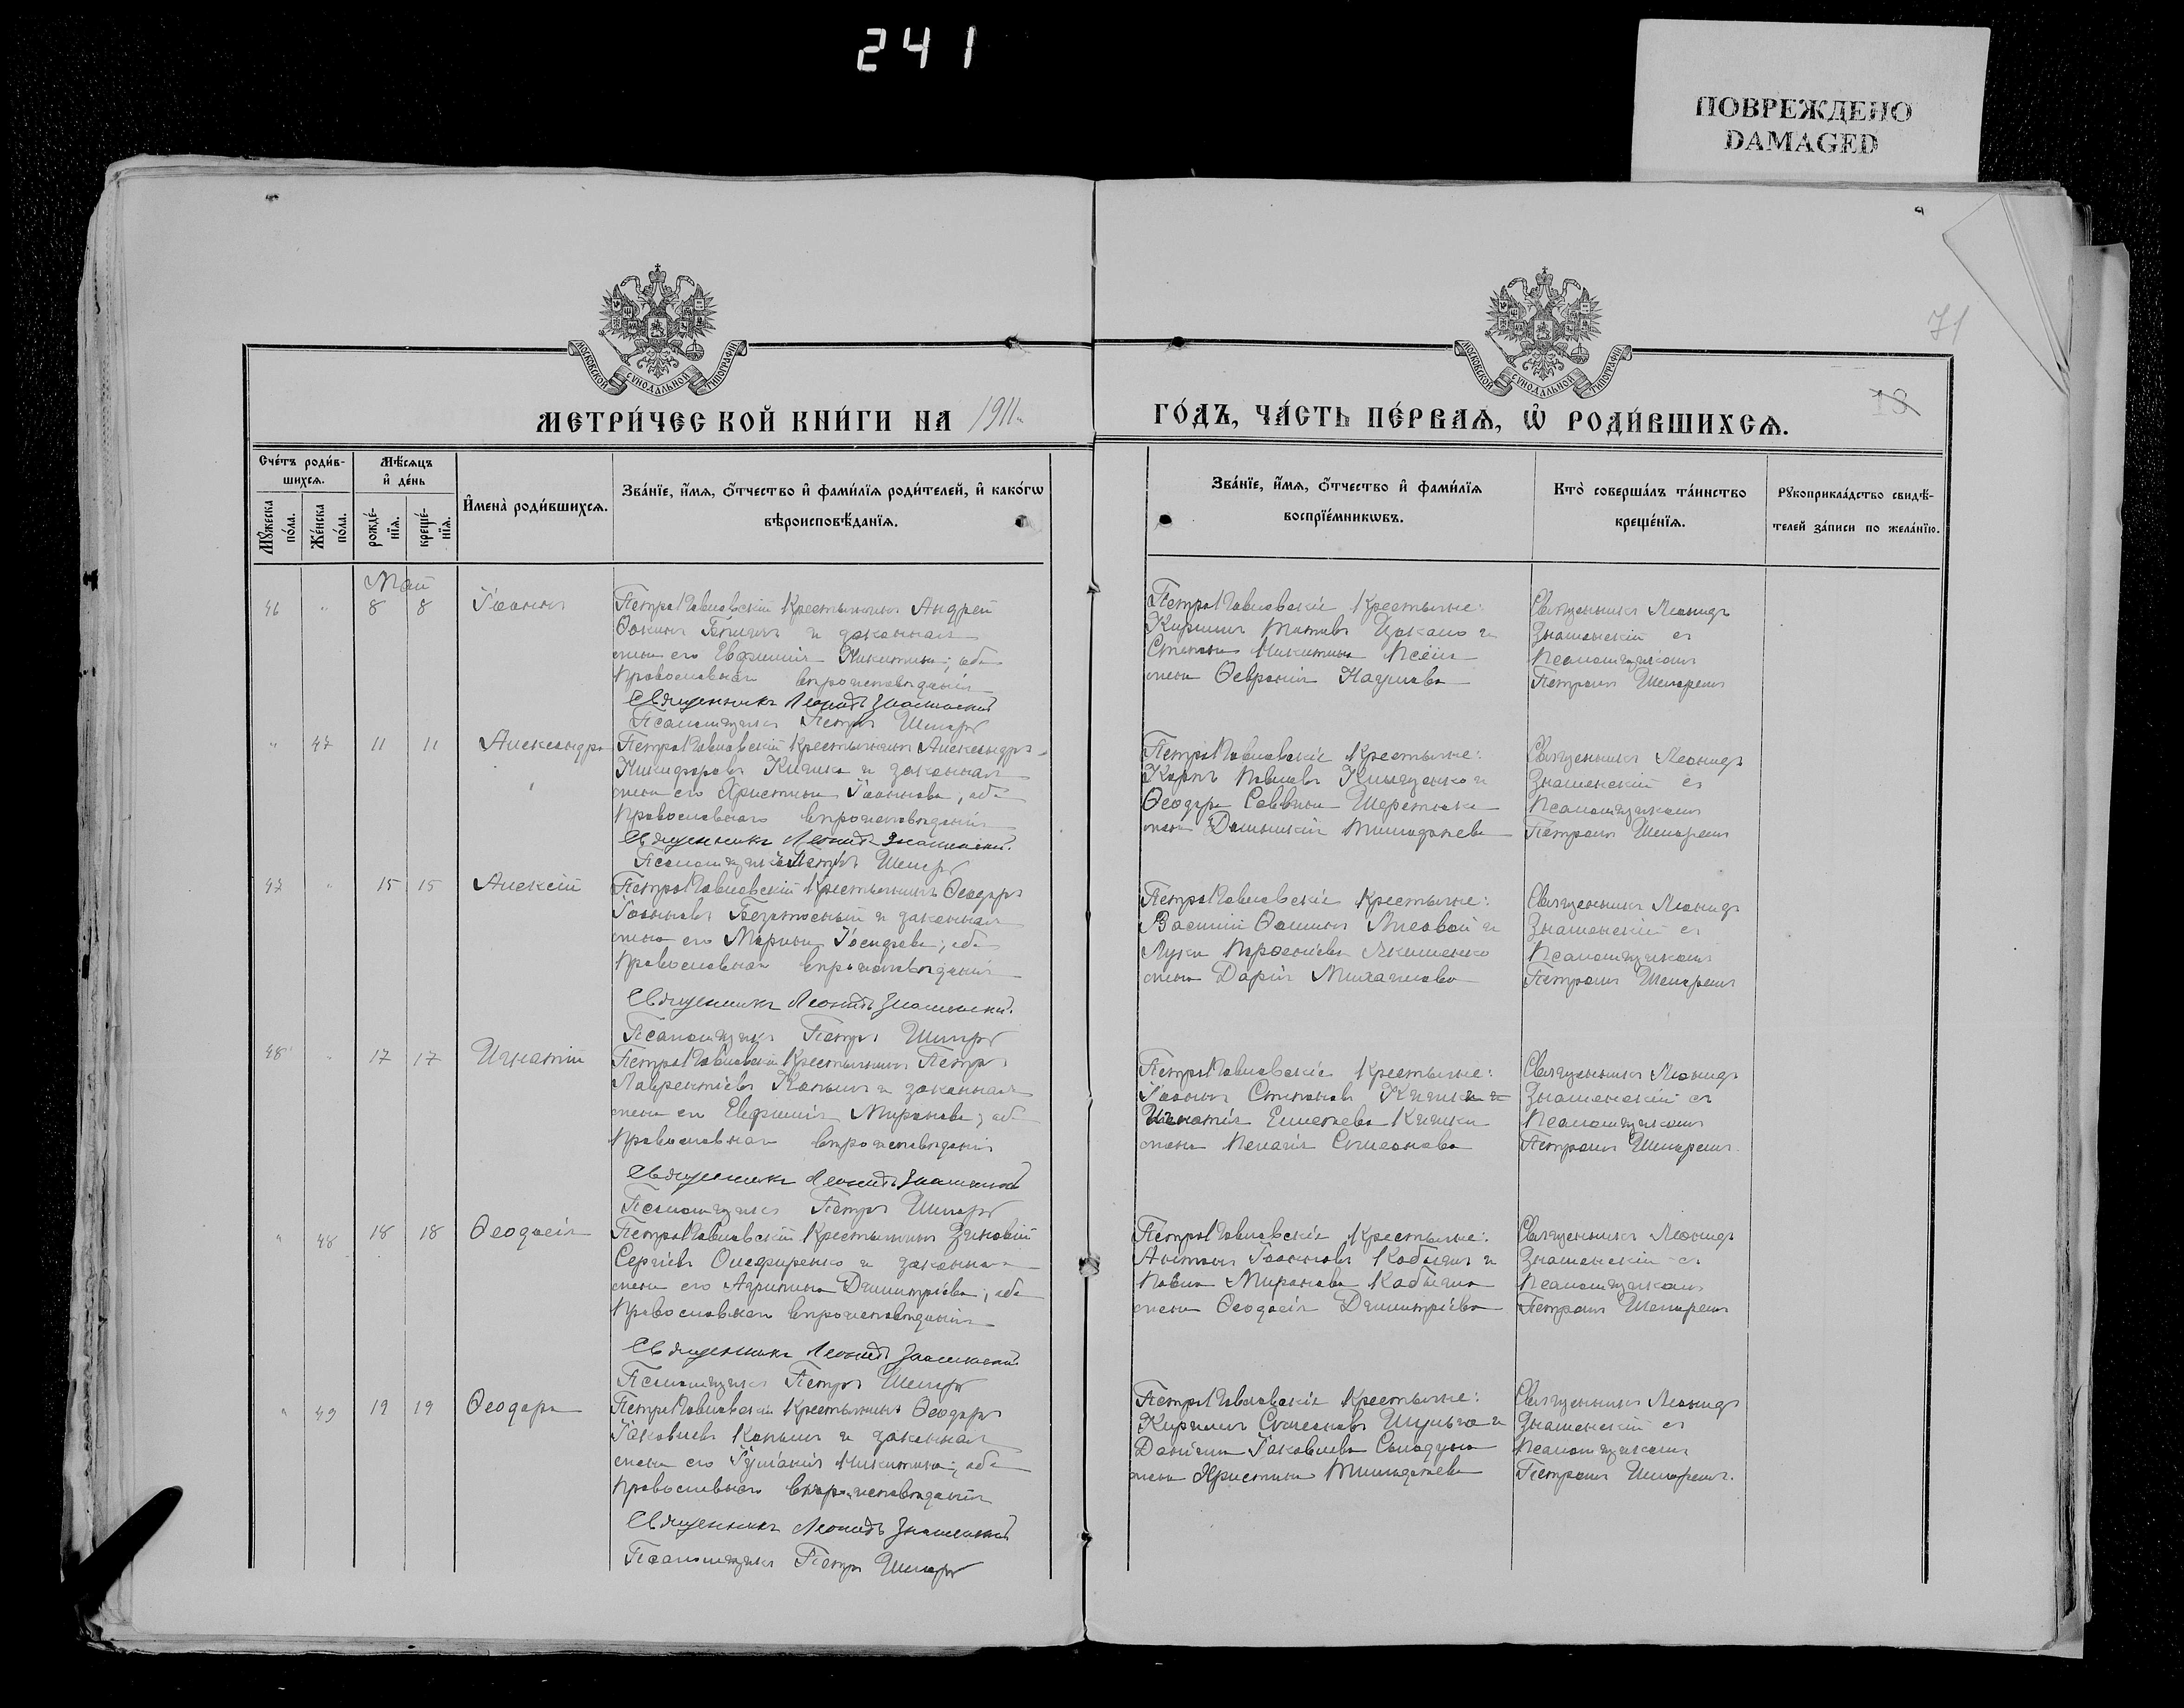 241
ПОВРЕЖДЕНО
DAMAGED
71
МОСКОВСКОЙ СѴНОДАЛЬНОЙ ТИПОГРАФІИ
МОСКОВСКОЙ СѴНОДАЛЬНОЙ ТИПОГРАФІИ
МЕТРИ́ЧЕСКОЙ КНИ́ГИ НА 1911
ГО́ДЪ, ЧА́СТЬ ПЕ́РВАѦ, Ѿ РОДИ́ВШИХСѦ.
13
Сче́тъ роди́в-
шихсѧ.
Мꙋ́жеска
по́ла.
Же́нска
по́ла.
Мѣ́сѧцъ
и҆ де́нь
рожде́-
нїѧ.
креще́-
нїѧ.
И҆мена̀ роди́вшихсѧ.
Зва́нїе, и҆́мѧ, ѻ҆́тчество и҆ фами́лїѧ роди́телей, и҆ како́гѡ
вѣроисповѣ́данїѧ.
Зва́нїе, и҆́мѧ, ѻ҆́тчество и҆ фами́лїѧ
воспрїе́мникѡвъ.
Кто̀ соверша́лъ та́инство
креще́нїѧ.
Рꙋкоприкла́дство свидѣ́-
телей за́писи по жела́нїю.
Май
46 " 8 8 Іоаннъ
ПетроПавловскій крестьянинъ Андрей
и законная
жена его Евфимія Никитина; оба
православнаго вѣроисповѣданія
Священникъ Леонидъ Знаменскій
Псаломщикъ Петръ
ПетроПавловскіе крестьяне:
Кириллъ Титовъ и
Стефана Никитина
жена Февронія Наумова
Священникъ Леонидъ
Знаменскій съ
псаломщикомъ
Петромъ
" 47 11 11 Александра
ПетроПавловскій крестьянинъ Александръ
Никифоровъ Кичико и законная
жена его Христина Іоаннова; оба
православнаго вѣроисповѣданія
Священникъ Леонидъ Знаменскій.
Псаломщикъ Петръ
ПетроПавловскіе крестьяне:
Карпъ Павловъ и
Ѳеодора Саввина
жена Домникія
Священникъ Леонидъ
Знаменскій съ
псаломщикомъ
Петромъ
47 " 15 15 Алексій
ПетроПавловскій крестьянинъ Ѳеодоръ
Іоанновъ и законная
жена его Марина Іосифова; оба
православнаго вѣроисповѣданія
Священникъ Леонидъ Знаменскій.
Псаломщикъ Петръ
ПетроПавловскіе крестьяне:
Василій Ѳоминъ Лисовой и
Луки Якименко
жена Дарія Михаилова
Священникъ Леонидъ
Знаменскій съ
псаломщикомъ
Петромъ
48 " 17 17 Игнатій
ПетроПавловскій крестьянинъ Петръ
Лаврентіевъ и законная
жена его Евфимія Миронова; оба
православнаго вѣроисповѣданія
Священникъ Леонидъ Знаменскій
Псаломщикъ Петръ
ПетроПавловскіе крестьяне:
Іоаннъ Стефановъ и
Игнатія
жена Пелагія Симеонова
Священникъ Леонидъ
Знаменскій съ
псаломщикомъ
Петромъ
" 48 18 18 Ѳеодосія
ПетроПавловскій крестьянинъ Зиновій
Сергіевъ Олефиренко и законная
жена его Димитріева; оба
православнаго вѣроисповѣданія
Священникъ Леонидъ Знаменскій.
Псаломщикъ Петръ
ПетроПавловскіе крестьяне:
Антонъ Іоанновъ и
Павла Миронова
жена Ѳеодосія Димитріева
Священникъ Леонидъ
Знаменскій съ
псаломщикомъ
Петромъ
" 49 19 19 Ѳеодора
ПетроПавловскій крестьянинъ Ѳеодоръ
Іаковлевъ и законная
жена его Іуліанія Никитина; оба
православнаго вѣроисповѣданія
Священникъ Леонидъ Знаменскій
Псаломщикъ Петръ
ПетроПавловскіе крестьяне:
Кириллъ Симеоновъ Шульга и
Даніила Іаковлева
жена Христина
Священникъ Леонидъ
Знаменскій съ
псаломщикомъ
Петромъ